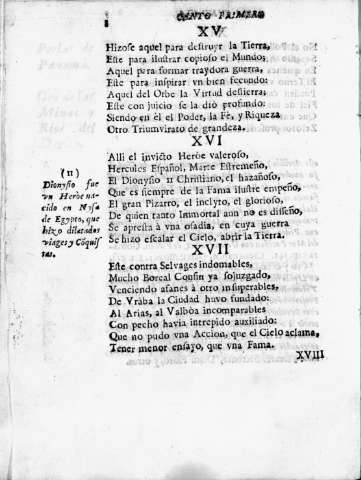 8 CANTO PRIMERO
XV
Hizose aquel para destruyr la Tierra,
Este para ilustrar copioso el Mundo;
Aquel para formar traydora guerra,
Este para inspirar vn bien fecundo:
Aquel del Orbe la Virtud destierra;
Este con juicio se la diò profundo:
Siendo en èl el Poder, la Fè, y Riqueza
Otro Triumvirato de grandeza.
XVI
Alli el invicto Heròe valeroso,
Hercules Español, Marte Estremeño,
El Dionysio 11 Christiano, el hazañoso,
Que es siempre de la Fama ilustre empeño,
El gran Pizarro, el inclyto, el glorioso,
De quien tanto Immortal aun no es diseño,
Se apresta à vna osadia, en cuya guerra
Se hizo escalar el Cielo, abrir la Tierra.
(11)
Dionysio fue
vn Heròe na-
cido en Nysa
de Egypto, que
hizo dilatados
viages y Côquis
tas.
XVII
Este contra Selvages indomables,
Mucho Boreal Confin ya sojuzgado,
Venciendo afanes à otro insuperables,
De Vraba la Ciudad huvo fundado:
Al Arias, al Valbòa incomparables
Con pecho havia intrepido auxiliado:
Que no pudo vna Accion, que el Cielo aclama,
Tener menor ensayo, que vna Fama.
XVIII